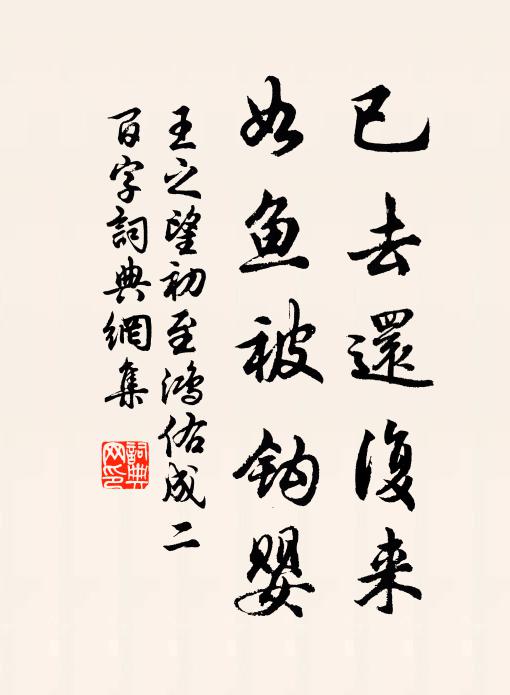 已去還復来
如鱼被钩嬰
王之望初至鴻佑成二
百字詞典網集
詞典
网印